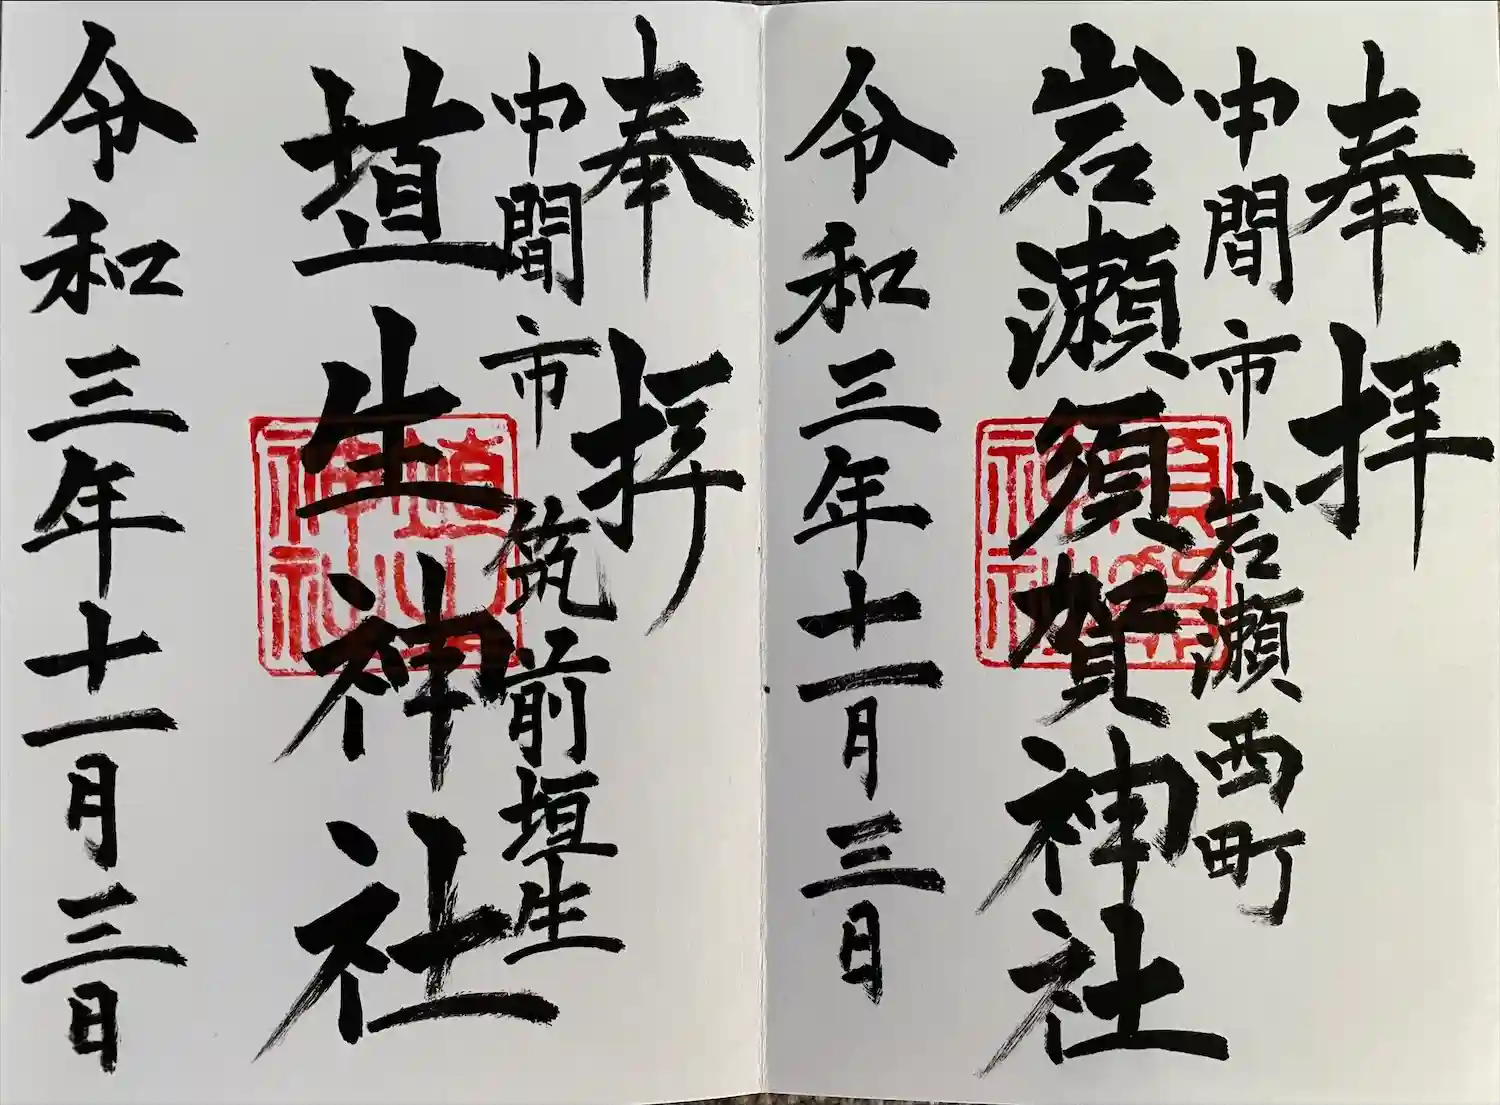 奉拝
中間市 岩瀬西町
岩瀬須賀神社
須賀神社
令和三年十一月三日
奉拝
中間市 筑前垣生
埴生神社
埴生神社
令和三年十一月三日